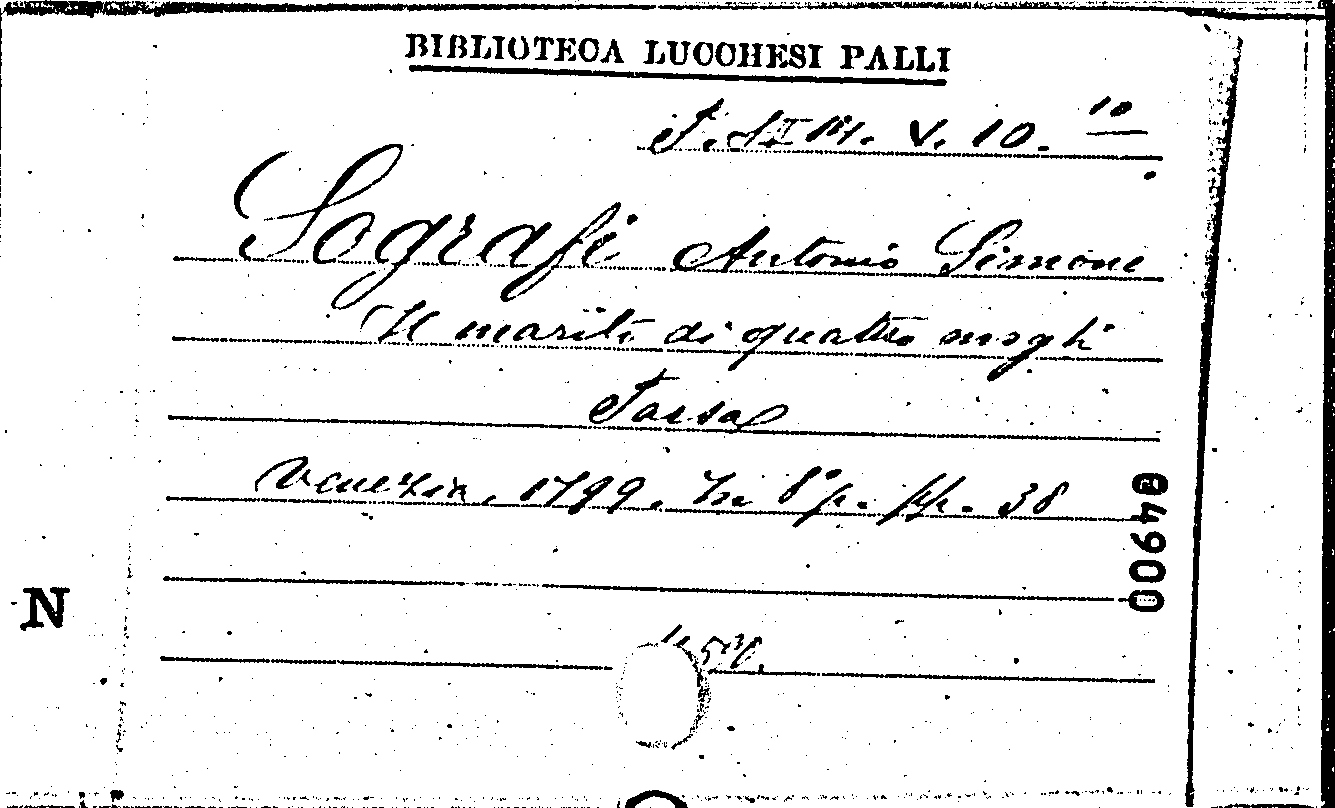 BIBLIOTECA LUCCHESI PALLI
V. 10. 10
Sografi Antonio Simone
Il marito di quattro mogli
Farsa
Venezia. 1799. In 8° p. pp. 38
04900
N